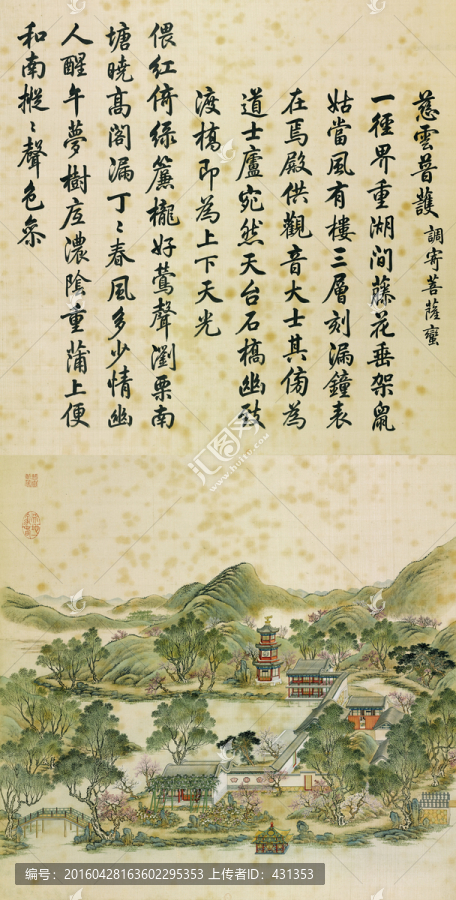 慈雲普護 調寄菩薩蠻
一徑界重湖間藤花垂架鼠
姑當風有樓三層刻漏鐘表
在焉殿供觀音大士其傍為
道士廬宛然天台石橋幽致
渡橋即為上下天光
偎紅倚綠簾櫳好鶯聲瀏栗南
塘曉高閣漏丁丶春風多少情幽
人醒午夢樹底濃陰重蒲上便
和南摐丶聲色參
汇图网
www.huitu.com
编号：20160428163602295353 上传者ID：431353